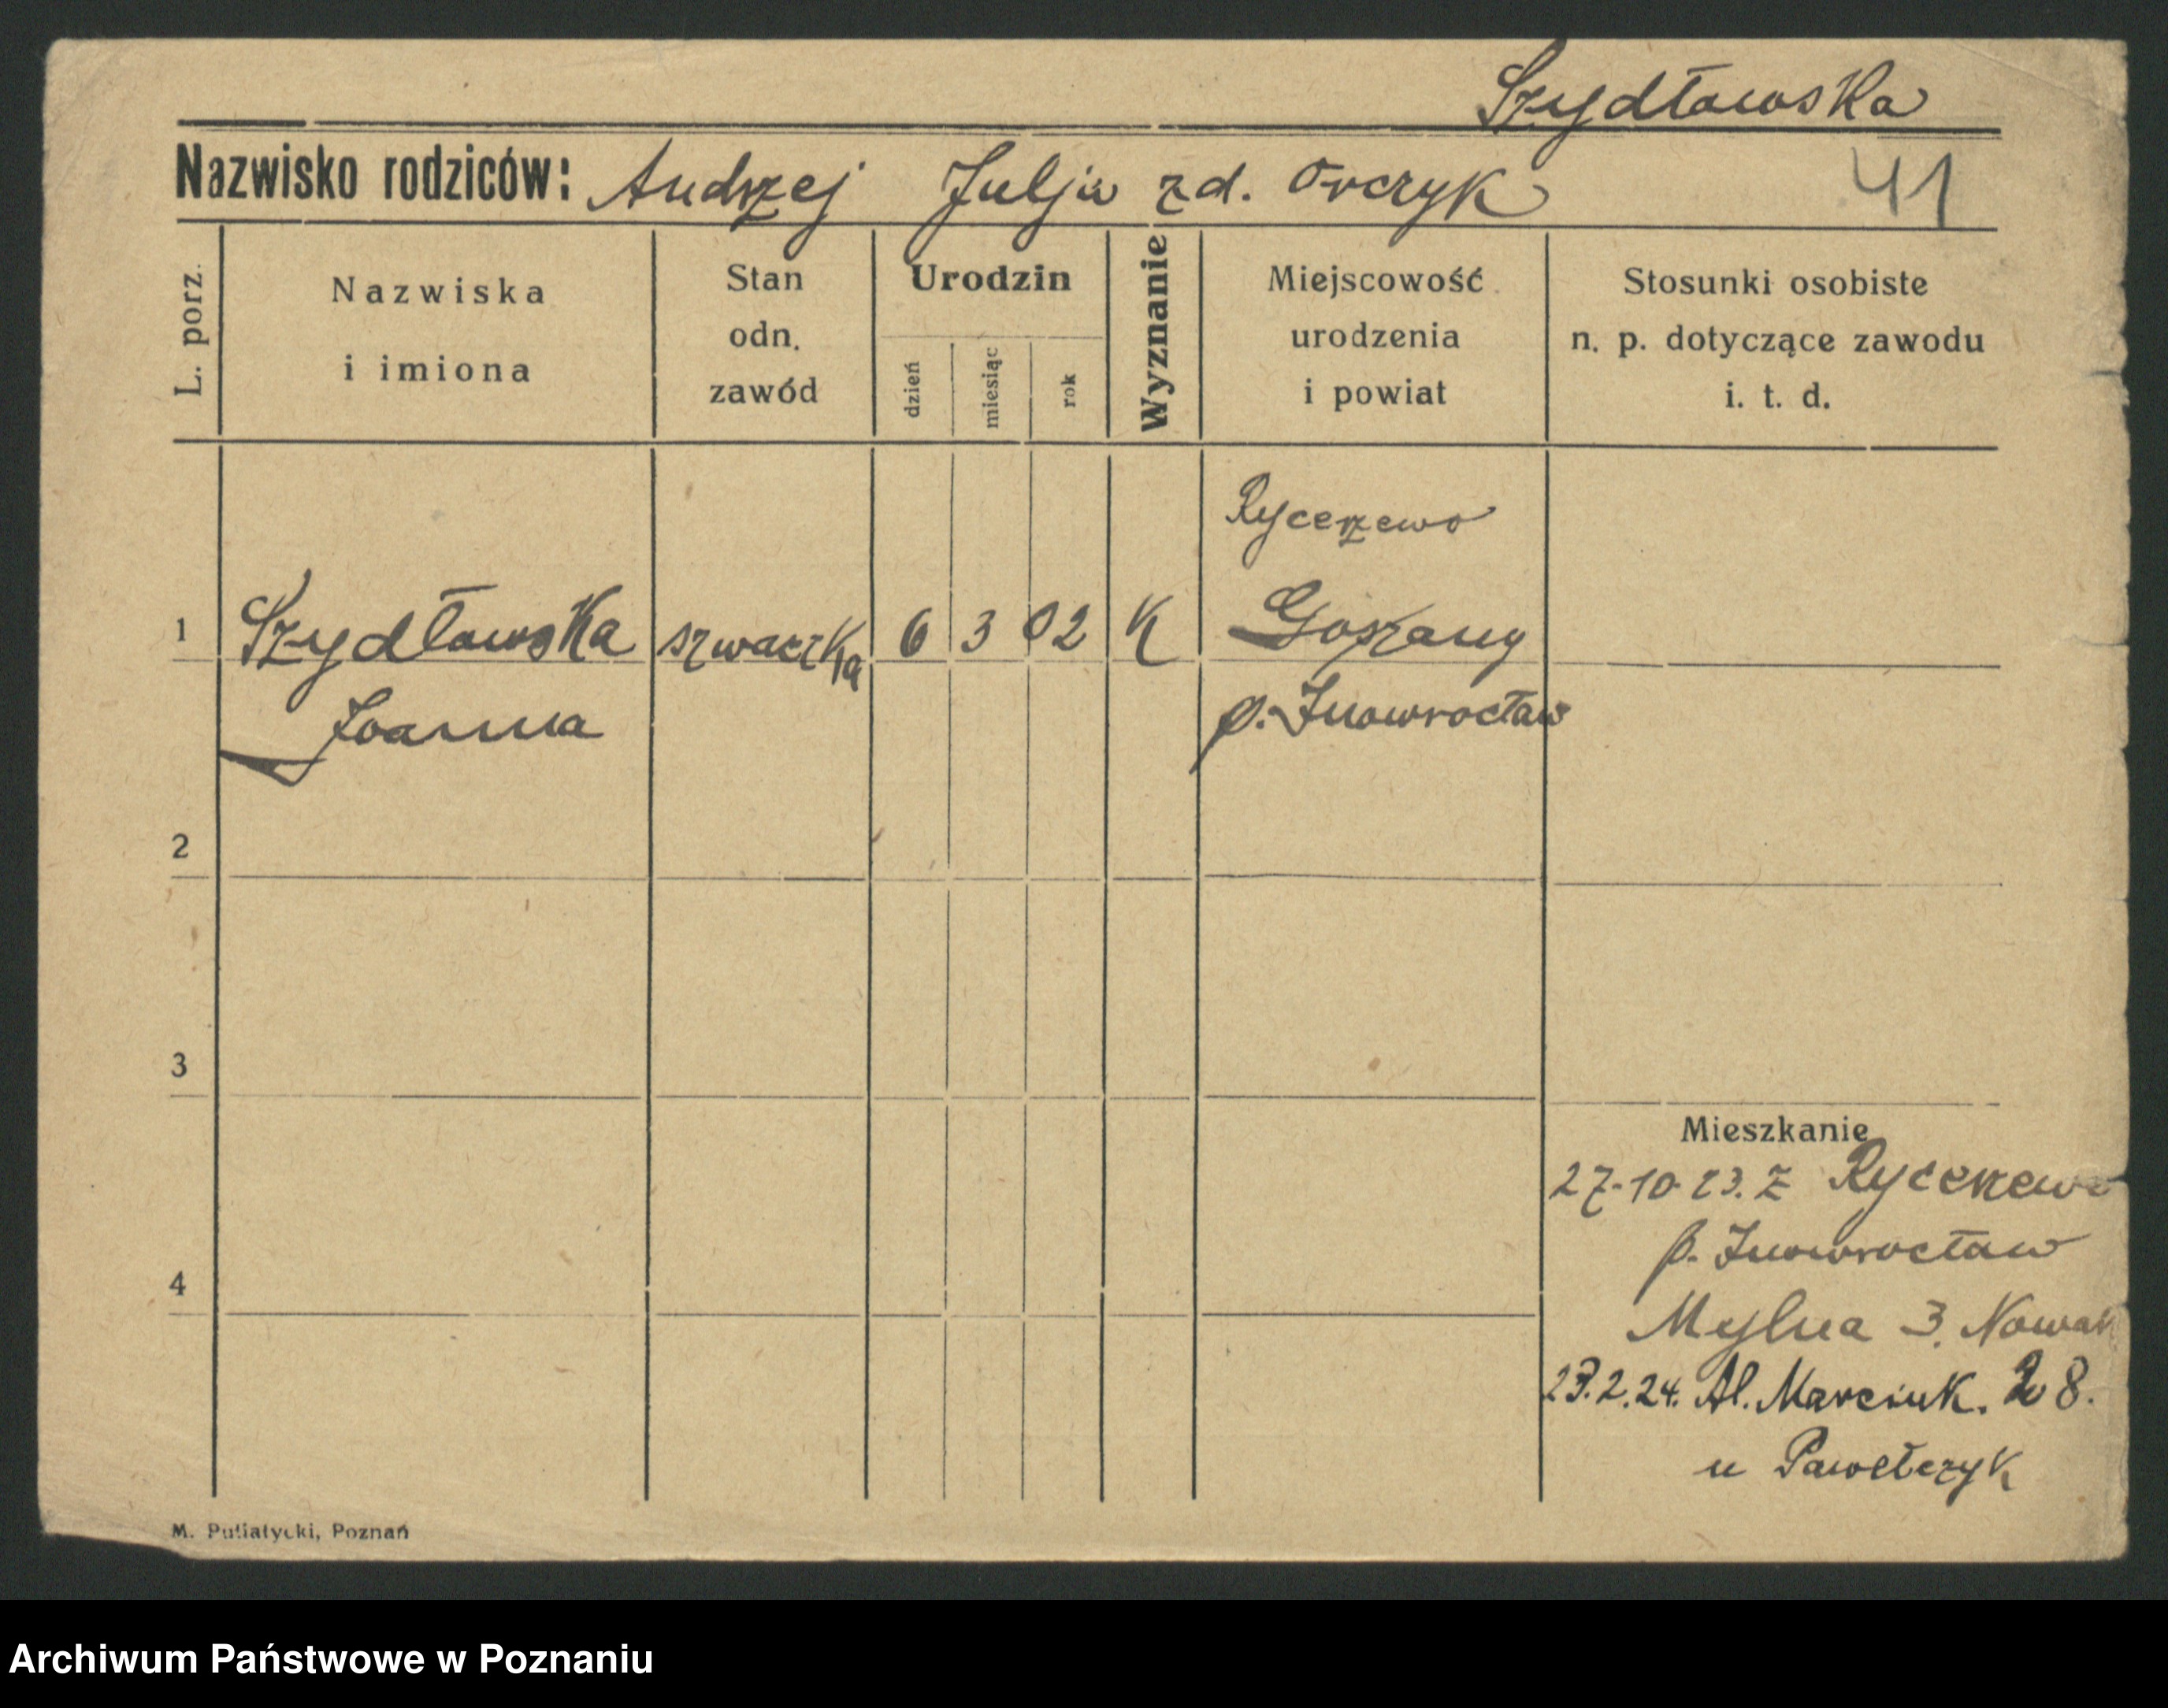 Szydłowska
Nazwisko rodziców: Andrzej Julja zd. Orczyk
41
L. porz.
Nazwiska
i imiona
Stan
odn.
zawód
Urodzin
dzień
miesiąc
rok
Wyznanie
Miejscowość
urodzenia
i powiat
Stosunki osobiste
n. p. dotyczące zawodu
i. t. d.
Rycerzewo
1 Szydłowska szwaczka 6 3 02 K
Joanna
p. Inowrocław
2
3
4
Mieszkanie
27-10-23. z Rycerzewo
p. Inowrocław
Mylna 3. Nowak
23.2.24. Al. Marcink. 28.
u Pawełczyk
M. Putiatycki, Poznań
Archiwum Państwowe w Poznaniu